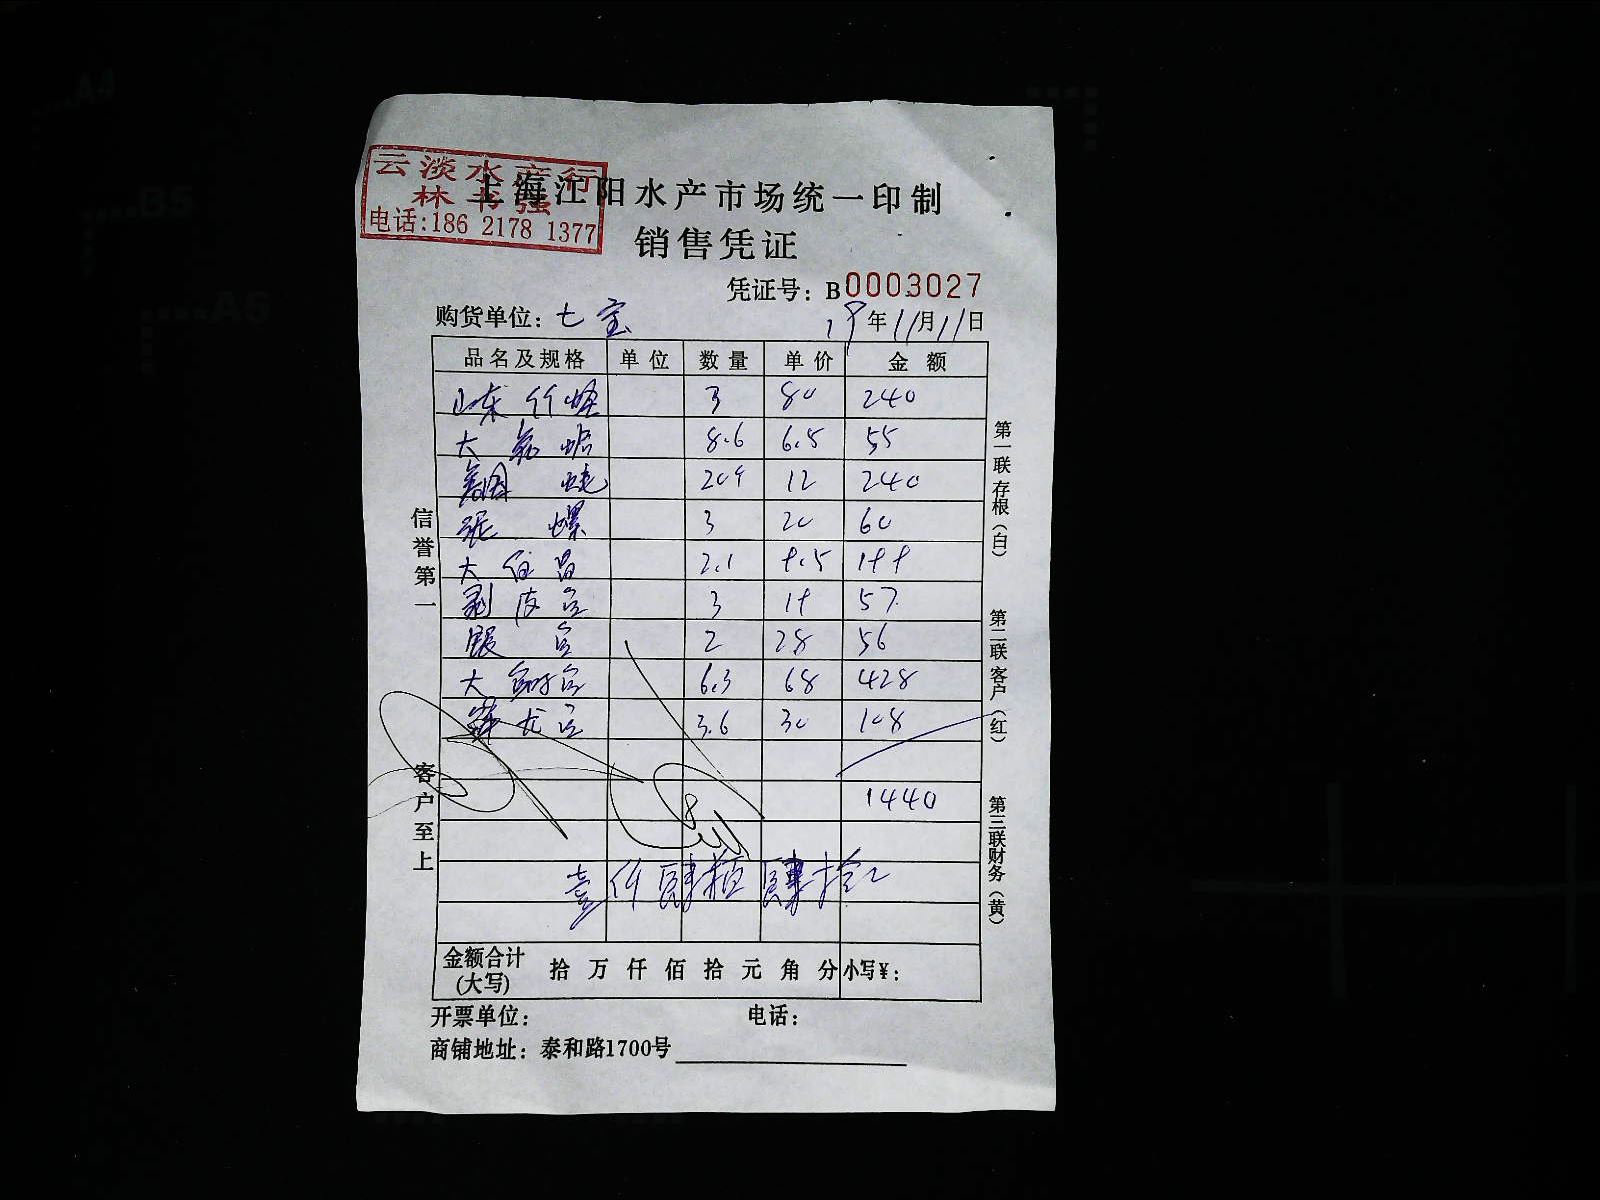 云淡水产行
林书强
电话:186 2178 1377
上海江阳水产市场统一印制
销售凭证
凭证号：B0003027
购货单位：七宝 19年11月11日
品名及规格 单位 数量 单价 金额
山东竹蛏 3 80 240
大 8.6 6.5 55
12 240
螺 3 20 60
大 2.1 9.5 199
剥皮 3 19 57
银 2 28 56
大 6.3 68 428
龙 3.6 30 108
1440
壹仟肆佰肆拾
金额合计(大写) 拾 万 仟 佰 拾 元 角 分 小写¥：
开票单位： 电话：
商铺地址：泰和路1700号
信誉第一
客户至上
第一联存根(白)
第二联客户(红)
第三联财务(黄)